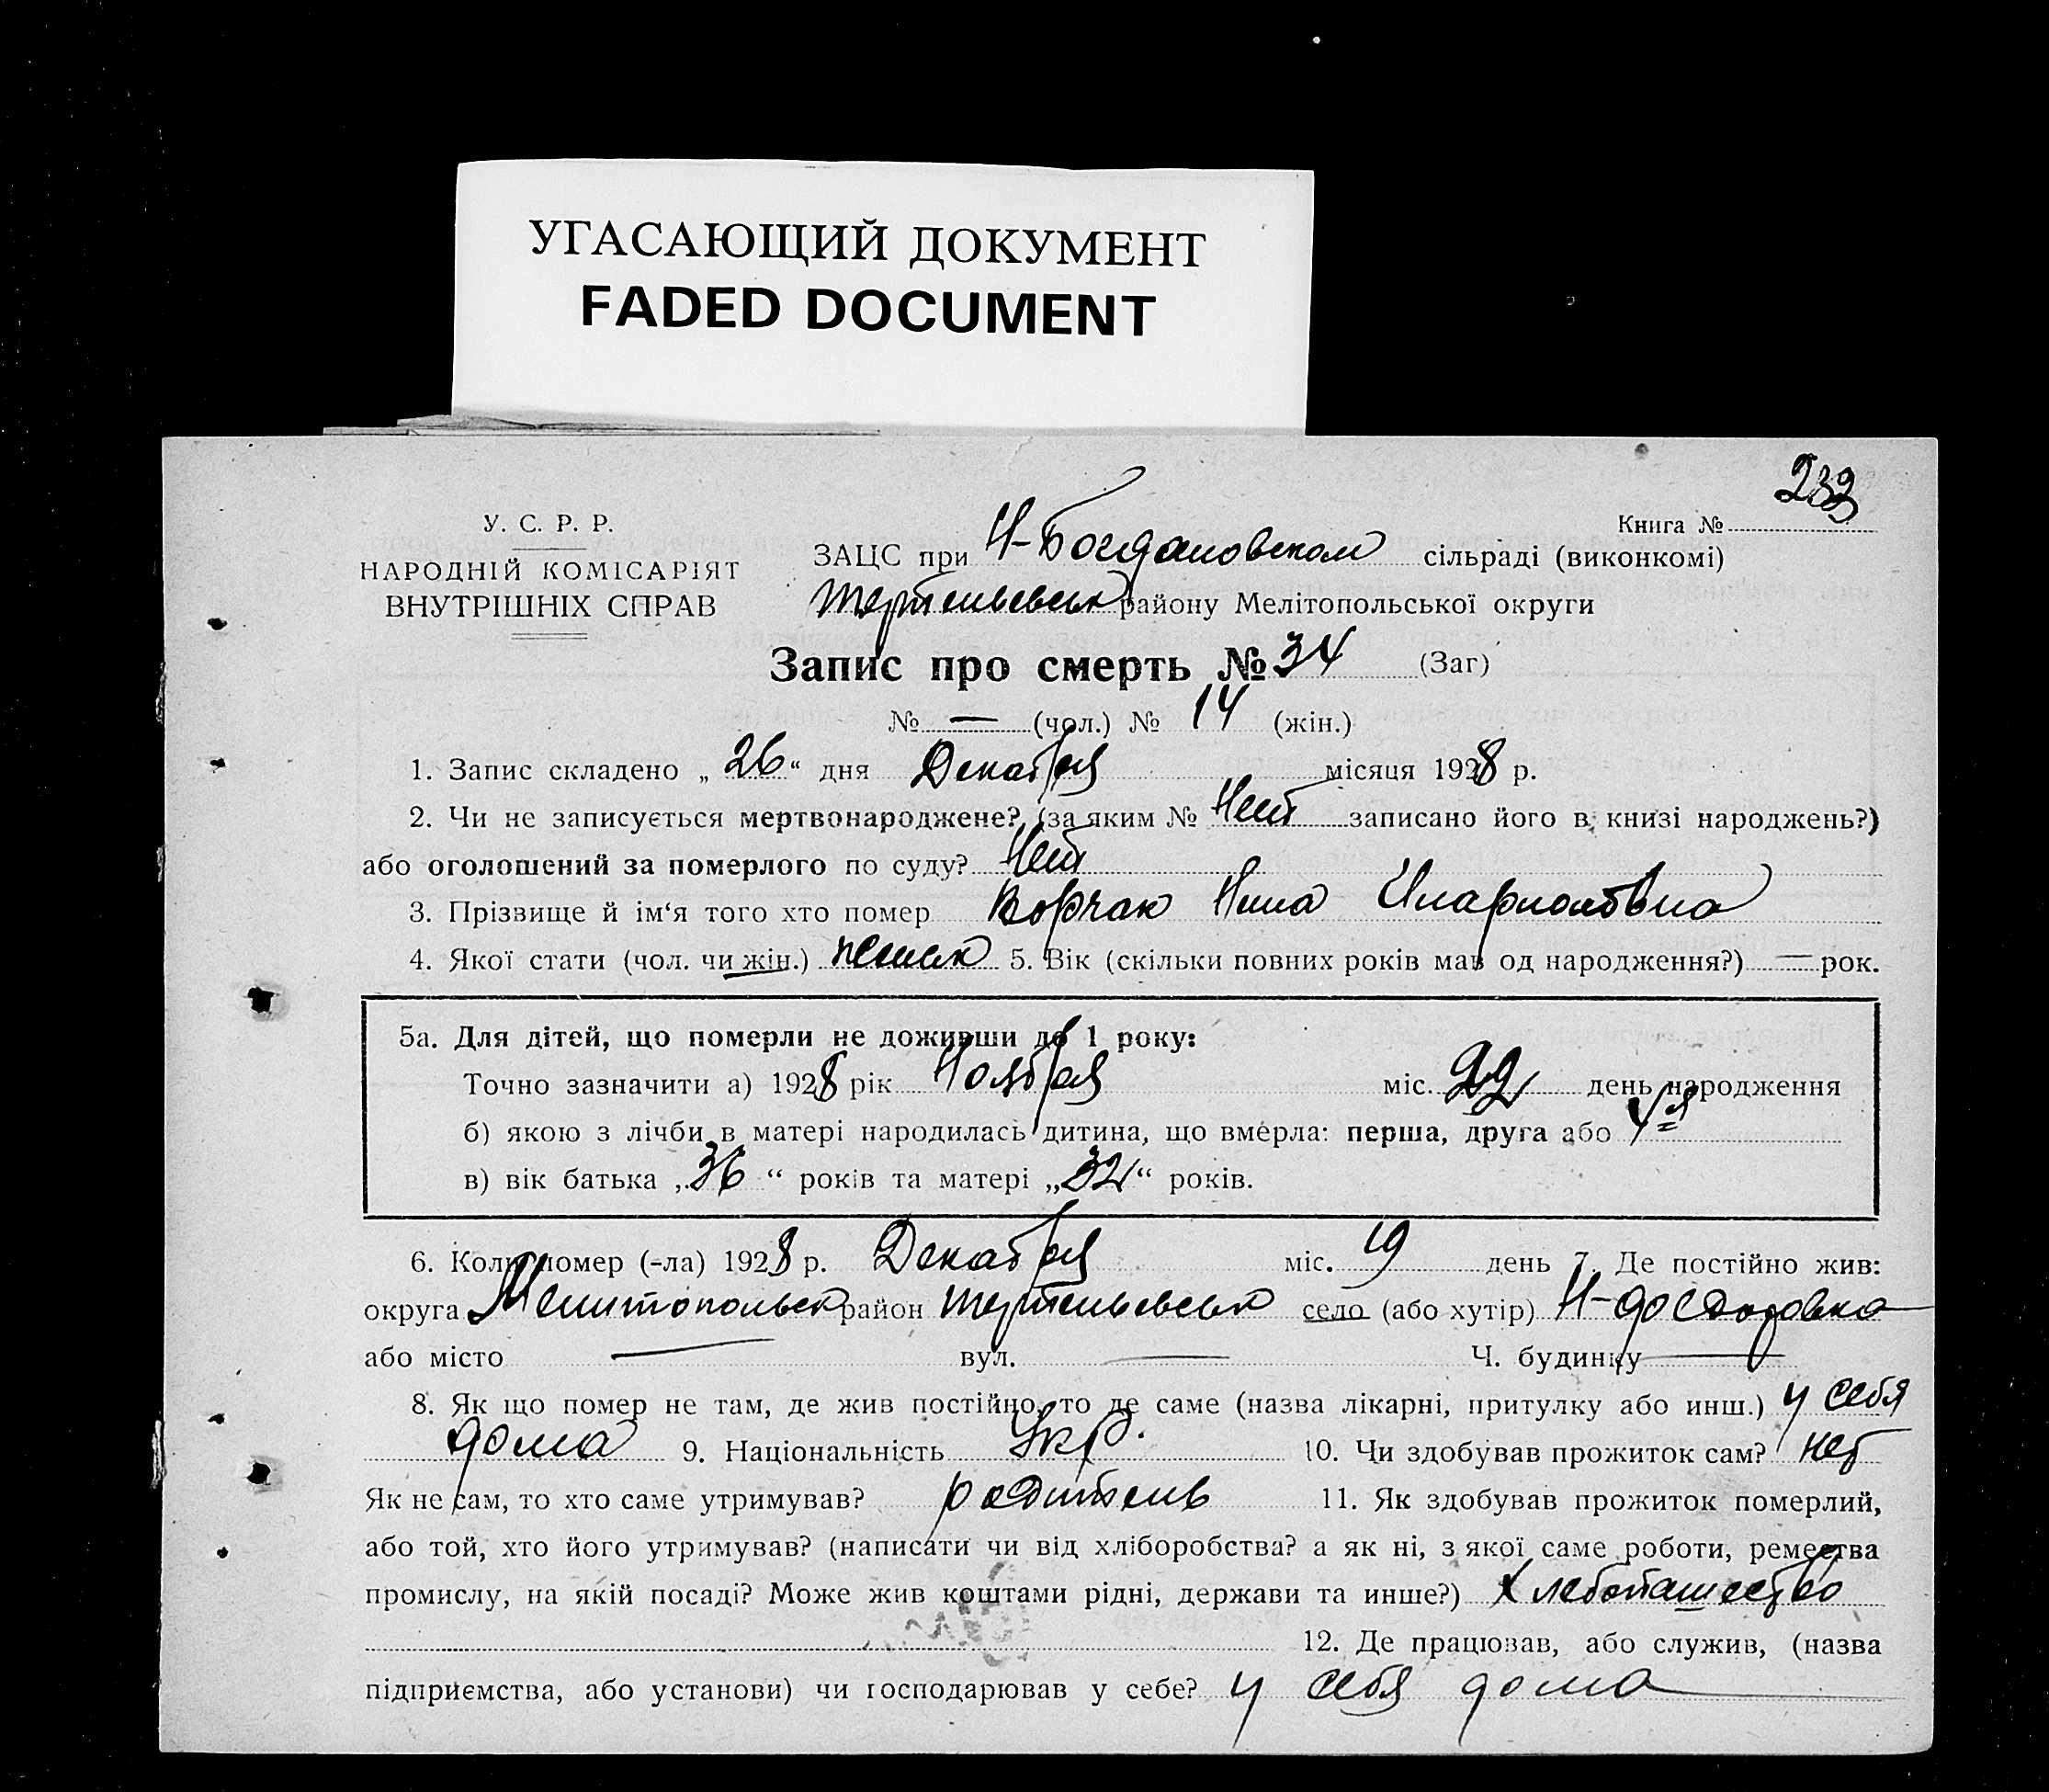 УГАСАЮЩИЙ ДОКУМЕНТ
FADED DOCUMENT
У. С. Р. Р.
НАРОДНІЙ КОМІСАРІЯТ
ВНУТРІШНІХ СПРАВ
Книга № 233
ЗАЦС при Н-Богдановском сільраді (виконкомі)
Терпеньевск району Мелітопольської округи
Запис про смерть № 34 (Заг)
№ — (чол.) № 14 (жін.)
1. Запис складено „ 26 “ дня Декабря місяця 1928 р.
2. Чи не записується мертвонароджене? (за яким № Нет записано його в книзі народжень?)
або оголошений за померлого по суду? Нет
3. Прізвище й ім‘я того хто помер Корчак Нина Иларионовна
4. Якої стати (чол. чи жін.) женск 5. Вік (скільки повних років мав од народження?) — рок.
5а. Для дітей, що померли не доживши до 1 року:
Точно зазначити а) 1928 рік Ноября міс. 22 день народження
б) якою з лічби в матері народилась дитина, що вмерла: перша, друга або 4я
в) вік батька „ 36 “ років та матері „ 32 “ років.
6. Коли помер (-ла) 1928 р. Декабря міс. 19 день 7. Де постійно жив:
округа Мелитопольск район Терпеньевск село (або хутір)
або місто — вул. — Ч. будинку —
8. Як що помер не там, де жив постійно, то де саме (назва лікарні, притулку або инш.) у себя
дома 9. Національність Укр. 10. Чи здобував прожиток сам? нет
Як не сам, то хто саме утримував? родитель 11. Як здобував прожиток померлий,
або той, хто його утримував? (написати чи від хліборобства? а як ні, з якої саме роботи, ремества
промислу, на якій посаді? Може жив коштами рідні, держави та инше?) Хлебопашество
12. Де працював, або служив, (назва
підприємства, або установи) чи господарював у себе? у себя дома